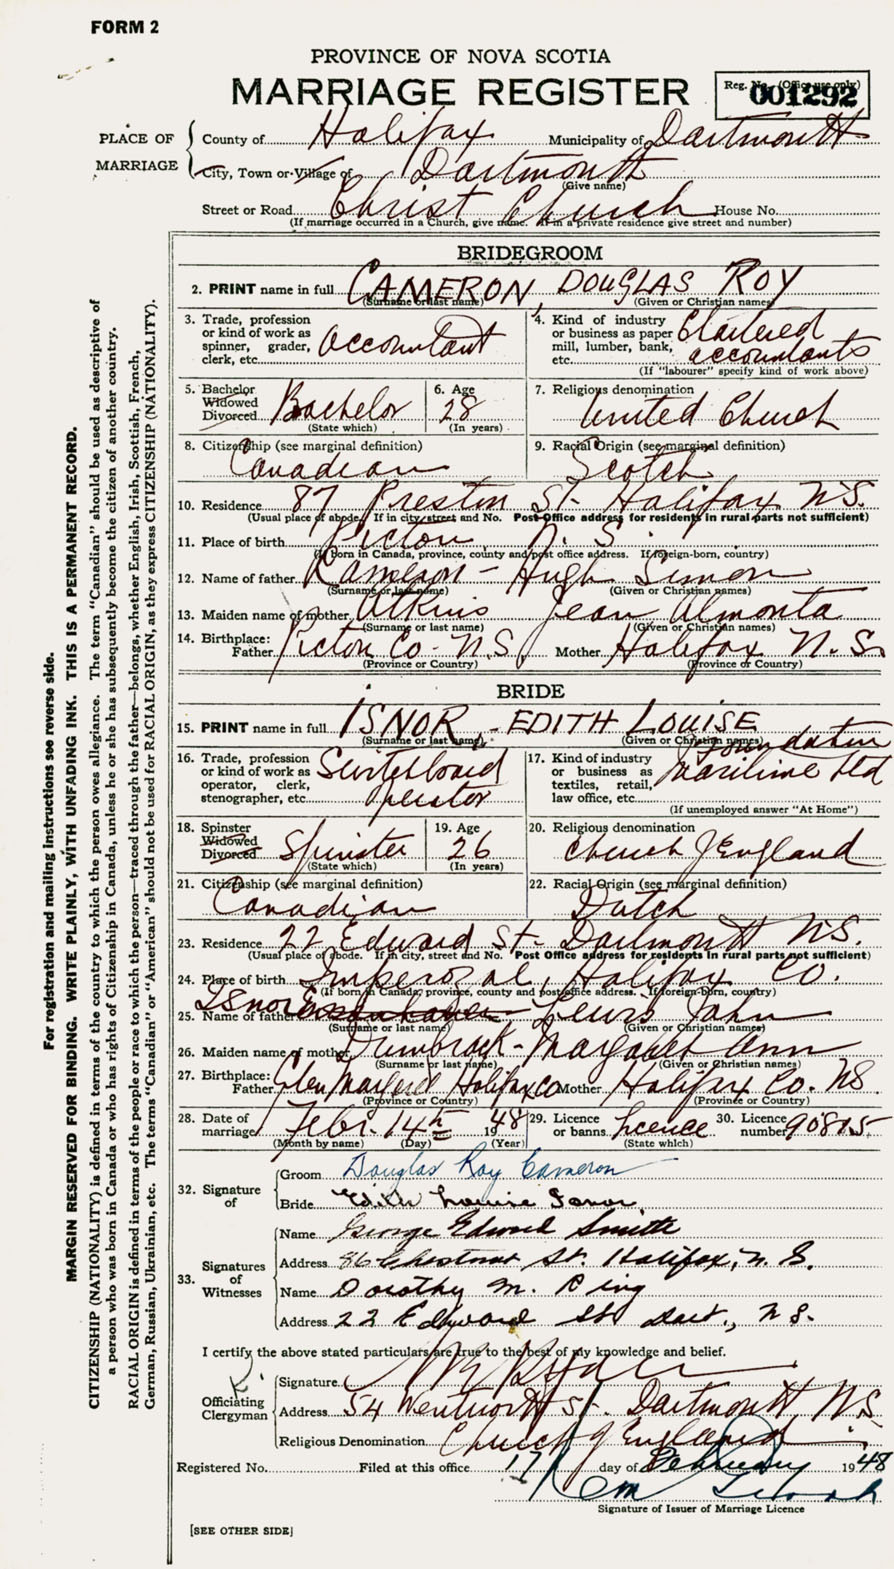 FORM 2
PROVINCE OF NOVA SCOTIA
MARRIAGE REGISTER
Reg. No. (Office use only)
001292
PLACE OF MARRIAGE
County of Halifax Municipality of Dartmouth
City, Town or Village of Dartmouth
(Give name)
Street or Road Christ Church House No.
(If marriage occurred in a Church, give name. If in a private residence give street and number)
BRIDEGROOM
2. PRINT name in full CAMERON, DOUGLAS ROY
(Surname or last name) (Given or Christian names)
3. Trade, profession or kind of work as spinner, grader, clerk, etc. Accountant
4. Kind of industry or business as paper mill, lumber, bank, etc. Chartered accountants
(If "labourer" specify kind of work above)
5. Bachelor Widowed Divorced Bachelor
(State which)
6. Age 28
(In years)
7. Religious denomination
United Church
8. Citizenship (see marginal definition)
Canadian
9. Racial Origin (see marginal definition)
Scotch
10. Residence 87 Preston St. Halifax N.S.
(Usual place of abode. If in city, street and No. Post Office address for residents in rural parts not sufficient)
11. Place of birth Pictou, N.S.
(If born in Canada, province, county and post office address. If foreign-born, country)
12. Name of father Cameron - Hugh Simon
(Surname or last name) (Given or Christian names)
13. Maiden name of mother Atkins Jean Almonta
(Surname or last name) (Given or Christian names)
14. Birthplace:
Father Pictou Co. N.S. Mother Halifax N.S.
(Province or Country) (Province or Country)
BRIDE
15. PRINT name in full ISNOR, - EDITH LOUISE
(Surname or last name) (Given or Christian names)
16. Trade, profession or kind of work as operator, clerk, stenographer, etc. Switchboard operator
17. Kind of industry or business as textiles, retail, law office, etc. Foundation Maritime Ltd
(If unemployed answer "At Home")
18. Spinster Widowed Divorced Spinster
(State which)
19. Age 26
(In years)
20. Religious denomination
Church of England
21. Citizenship (see marginal definition)
Canadian
22. Racial Origin (see marginal definition)
Dutch
23. Residence 22 Edward St. Dartmouth N.S.
(Usual place of abode. If in city, street and No. Post Office address for residents in rural parts not sufficient)
24. Place of birth Imperoyal, Halifax Co.
(If born in Canada, province, county and post office address. If foreign-born, country)
25. Name of father Isnor Lewis John
(Surname or last name) (Given or Christian names)
26. Maiden name of mother Drumbrack - Margaret Ann
(Surname or last name) (Given or Christian names)
27. Birthplace:
Father Glen Margaret Halifax Co Mother Halifax Co. NS
(Province or Country) (Province or Country)
28. Date of marriage Febr. 14th 1948
(Month by name) (Day) (Year)
29. Licence or banns Licence
(State which)
30. Licence number 90815
32. Signature of
Groom Douglas Roy Cameron
Bride Edith Louise Isnor
33. Signatures of Witnesses
Name George Edward Smith
Address 86 Chestnut St. Halifax, N.S.
Name Dorothy M.
Address 22 Edward St. Dart., N.S.
I certify the above stated particulars are true to the best of my knowledge and belief.
Officiating Clergyman
Signature
Address 54 Wentworth St. Dartmouth N.S.
Religious Denomination Church of England
Registered No. Filed at this office 17 day of February 1948
Signature of Issuer of Marriage Licence
[SEE OTHER SIDE]
For registration and mailing instructions see reverse side.
MARGIN RESERVED FOR BINDING. WRITE PLAINLY, WITH UNFADING INK. THIS IS A PERMANENT RECORD.
CITIZENSHIP (NATIONALITY) is defined in terms of the country to which the person owes allegiance. The term "Canadian" should be used as descriptive of
a person who was born in Canada or who has rights of Citizenship in Canada, unless he or she has subsequently become the citizen of another country.
RACIAL ORIGIN is defined in terms of the people or race to which the person—traced through the father—belongs, whether English, Irish, Scottish, French,
German, Russian, Ukrainian, etc. The terms "Canadian" or "American" should not be used for RACIAL ORIGIN, as they express CITIZENSHIP (NATIONALITY).